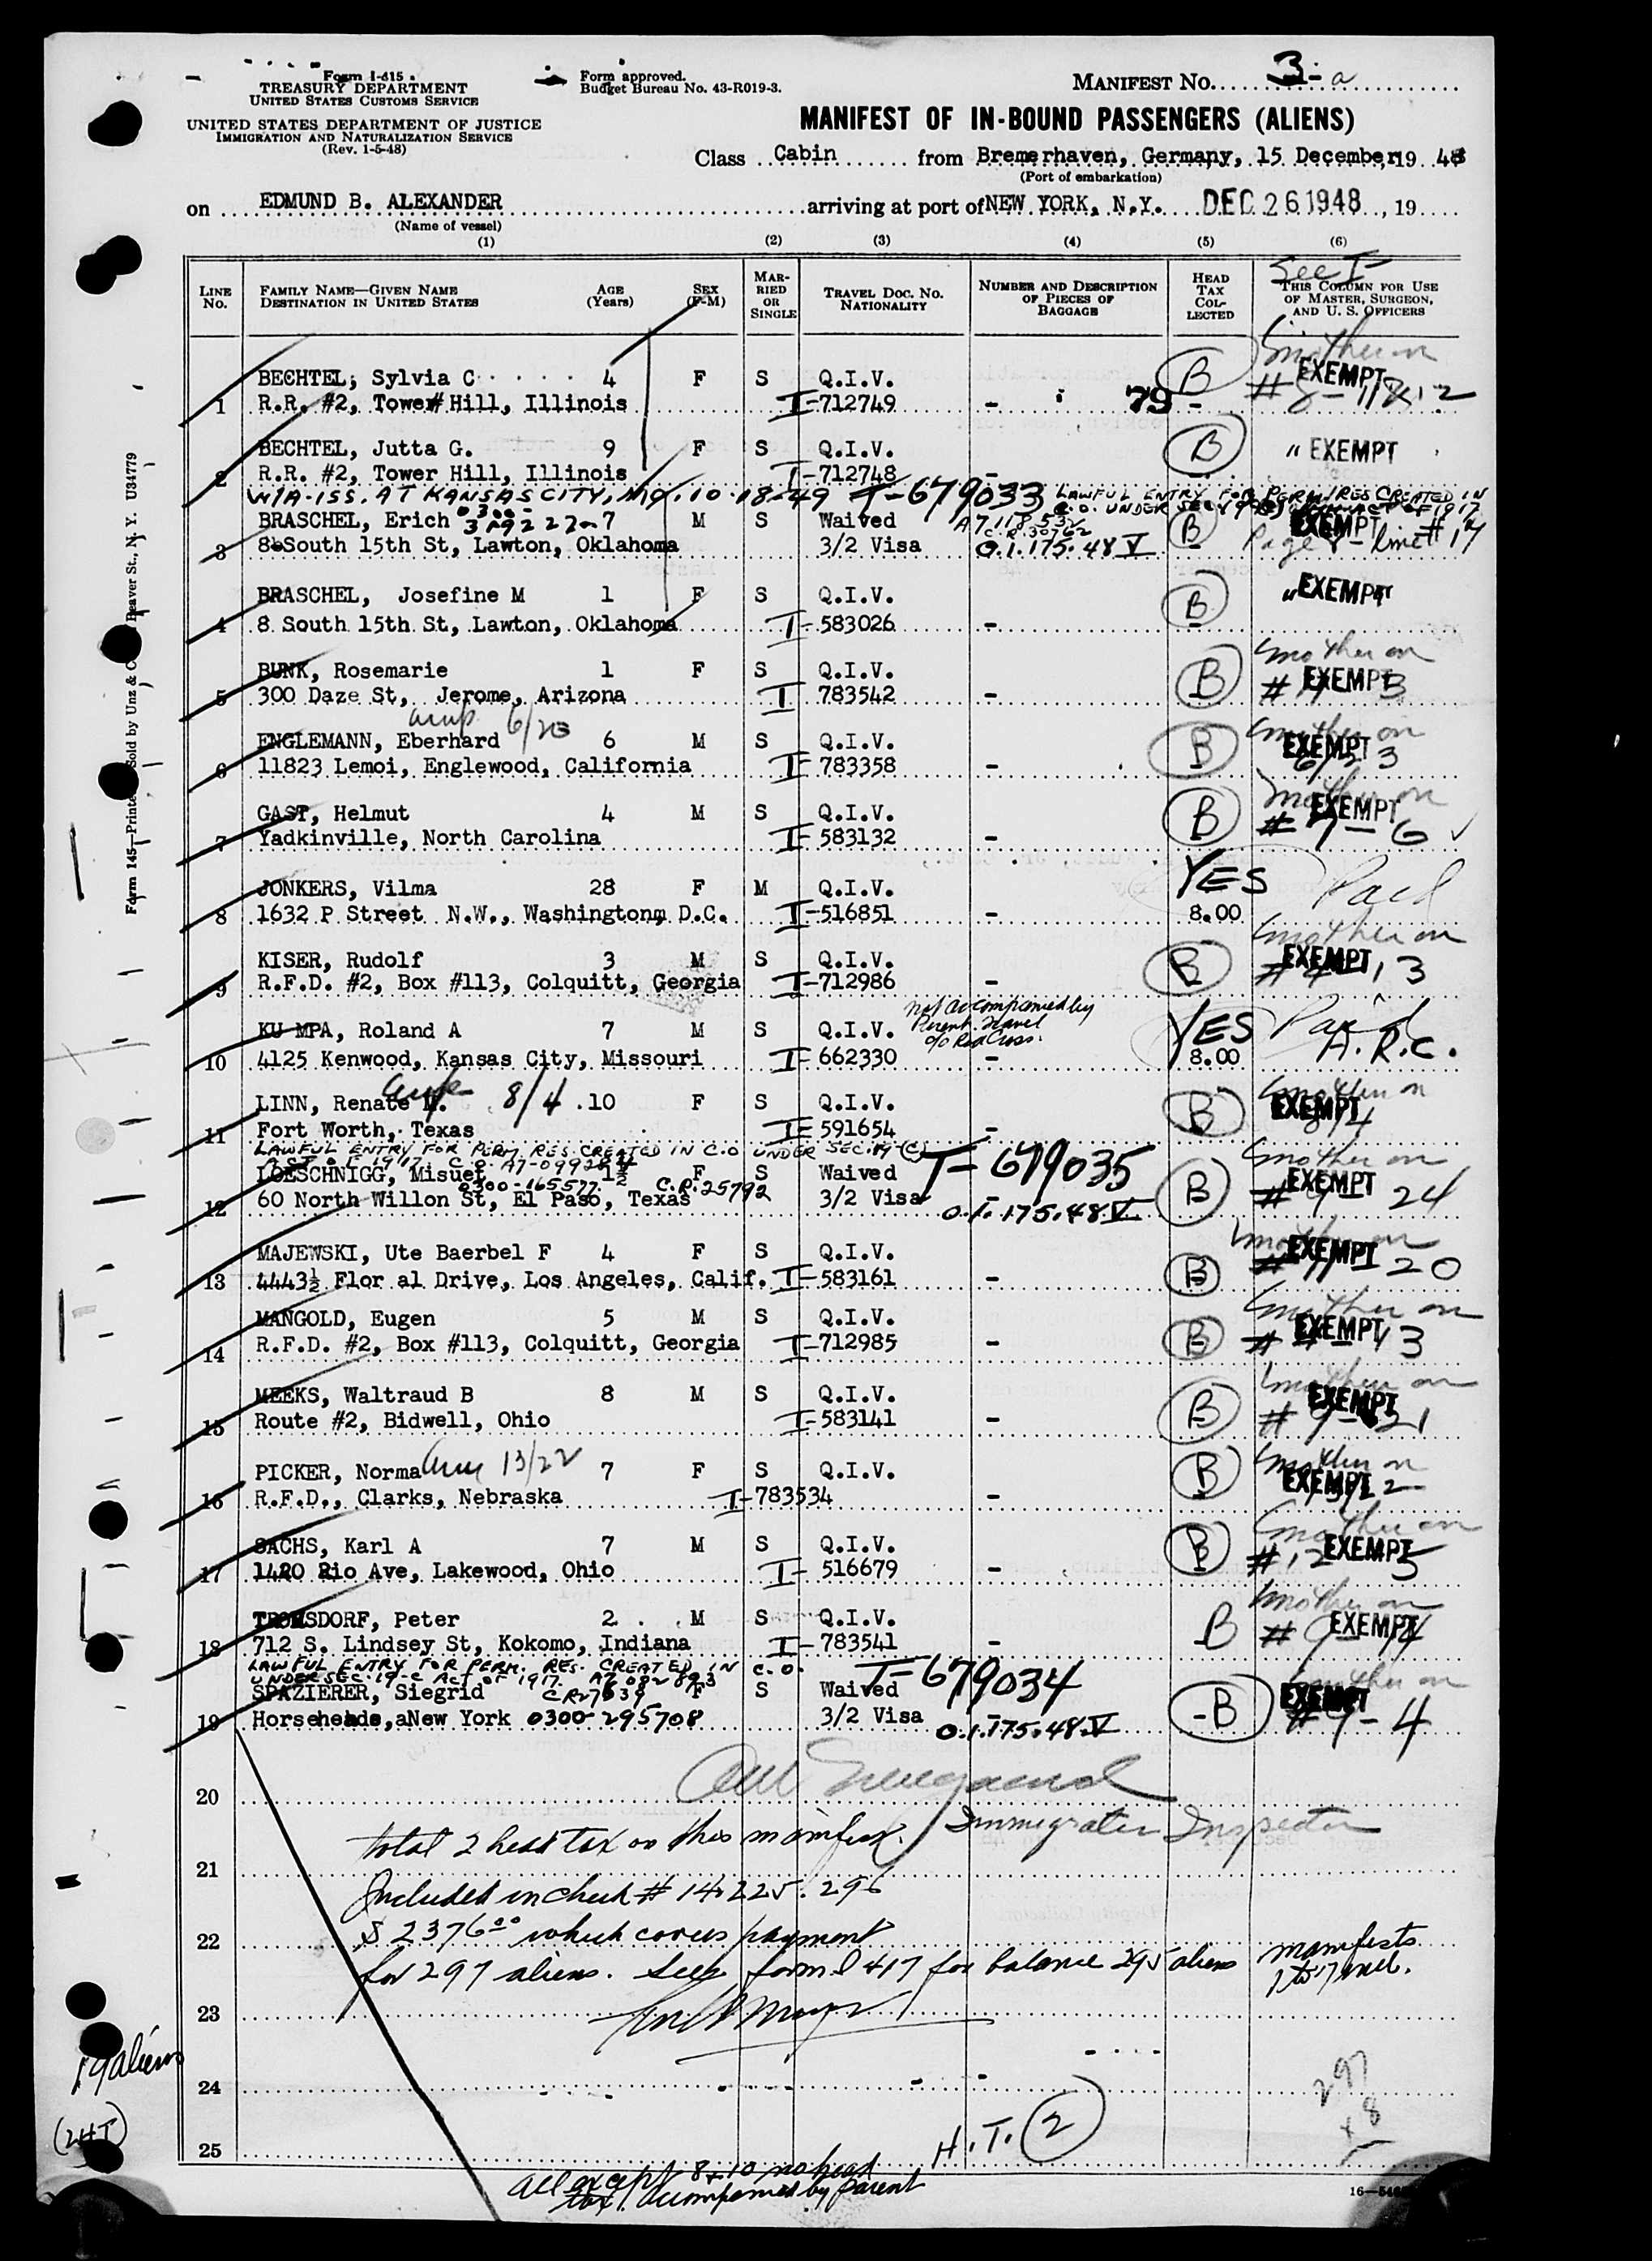 Form I-415
TREASURY DEPARTMENT
UNITED STATES CUSTOMS SERVICE
UNITED STATES DEPARTMENT OF JUSTICE
IMMIGRATION AND NATURALIZATION SERVICE
(Rev. 1-5-48)
Form approved.
Budget Bureau No. 43-R019-3.
MANIFEST NO. 3-a
MANIFEST OF IN-BOUND PASSENGERS (ALIENS)
Class Cabin from Bremerhaven, Germany, 15 December, 19 48
(Port of embarkation)
on EDMUND B. ALEXANDER arriving at port of NEW YORK, N.Y. DEC 26 1948, 19
(Name of vessel)
(1) (2) (3) (4) (5) (6)
LINE No. FAMILY NAME—GIVEN NAME DESTINATION IN UNITED STATES AGE (Years) SEX (F-M) MARRIED OR SINGLE TRAVEL DOC. NO. NATIONALITY NUMBER AND DESCRIPTION OF PIECES OF BAGGAGE HEAD TAX COLLECTED THIS COLUMN FOR USE OF MASTER, SURGEON, AND U. S. OFFICERS
BECHTEL, Sylvia C 4 F S Q.I.V. B mother on EXEMPT
1 R.R. #2, Tower Hill, Illinois I-712749 - 79 -
BECHTEL, Jutta G. 9 F S Q.I.V. B " EXEMPT
2 R.R. #2, Tower Hill, Illinois I-712748 -
W/A-ISS. AT KANSAS CITY, MO. 10-18-49 T-679033 LAWFUL ENTRY FOR PERM RES CREATED IN
BRASCHEL, Erich 7 M S Waived B EXEMPT
3 8 South 15th St, Lawton, Oklahoma 3/2 Visa O.I. 175.48 V Page 8 - line # 17
BRASCHEL, Josefine M 1 F S Q.I.V. B " EXEMPT
4 8 South 15th St, Lawton, Oklahoma I-583026 -
BUNK, Rosemarie 1 F S Q.I.V. B mother on EXEMPT
5 300 Daze St, Jerome, Arizona I 783542 -
ENGLEMANN, Eberhard 6 M S Q.I.V. B mother on EXEMPT
6 11823 Lemoi, Englewood, California I-783358 -
GAST, Helmut 4 M S Q.I.V. B mother on EXEMPT
7 Yadkinville, North Carolina I-583132 - # 7-6
JONKERS, Vilma 28 F M Q.I.V. YES Paid
8 1632 P Street N.W., Washington, D.C. I-516851 - 8.00
KISER, Rudolf 3 M S Q.I.V. B mother on EXEMPT
9 R.F.D. #2, Box #113, Colquitt, Georgia I-712986 - 13
not accompanied by Parent. Travel c/o Red Cross.
KUMPA, Roland A 7 M S Q.I.V. YES Paid
10 4125 Kenwood, Kansas City, Missouri I-662330 - 8.00 A.R.C.
LINN, Renate M. 8/4 10 F S Q.I.V. B mother on EXEMPT
11 Fort Worth, Texas I-591654 -
LAWFUL ENTRY FOR PERM. RES. CREATED IN C.O UNDER SEC. 19 (C) T-679035
LOESCHNIGG, Misuel 1½ F S Waived B mother on EXEMPT
0300-165577 C.R. 25792
12 60 North Willon St, El Paso, Texas 3/2 Visa - O.I. 175.48 V 24
MAJEWSKI, Ute Baerbel F 4 F S Q.I.V. B mother on EXEMPT
13 4443½ Flor al Drive, Los Angeles, Calif. I-583161 - 20
MANGOLD, Eugen 5 M S Q.I.V. B mother on EXEMPT
14 R.F.D. #2, Box #113, Colquitt, Georgia I-712985 - 13
MEEKS, Waltraud B 8 M S Q.I.V. B mother on EXEMPT
15 Route #2, Bidwell, Ohio I-583141 - 21
PICKER, Norma 13/22 7 F S Q.I.V. B mother on EXEMPT
16 R.F.D., Clarks, Nebraska I-783534 -
SACHS, Karl A 7 M S Q.I.V. B mother on EXEMPT
17 1420 Rio Ave, Lakewood, Ohio I-516679 - # 12 5
TROMSDORF, Peter 2 M S Q.I.V. B mother on EXEMPT
18 712 S. Lindsey St, Kokomo, Indiana I-783541 -
LAWFUL ENTRY FOR PERM. RES. CREATED IN C.O. T-679034
UNDER SEC. 19-C ACT OF 1917
SPAZIERER, Siegrid F S Waived B mother on EXEMPT
19 Horseheads, New York 0300-295708 3/2 Visa - O.I. 175.48 V # 9-4
20
Immigration Inspector
total 2 head tax on this manifest.
21
Included in check # 14,225.296
22 $ 2376.00 which covers payment
for 297 aliens. See form I 417 for balance 295 aliens manifests 1 to 17 incl.
23
24
25
H.T. 2
297
x 8
19 aliens
(2HT)
all except 8+10 no head
tax. accompanied by parent
Form 145—Printed Sold by Unz & Co Beaver St., N. Y. U34779